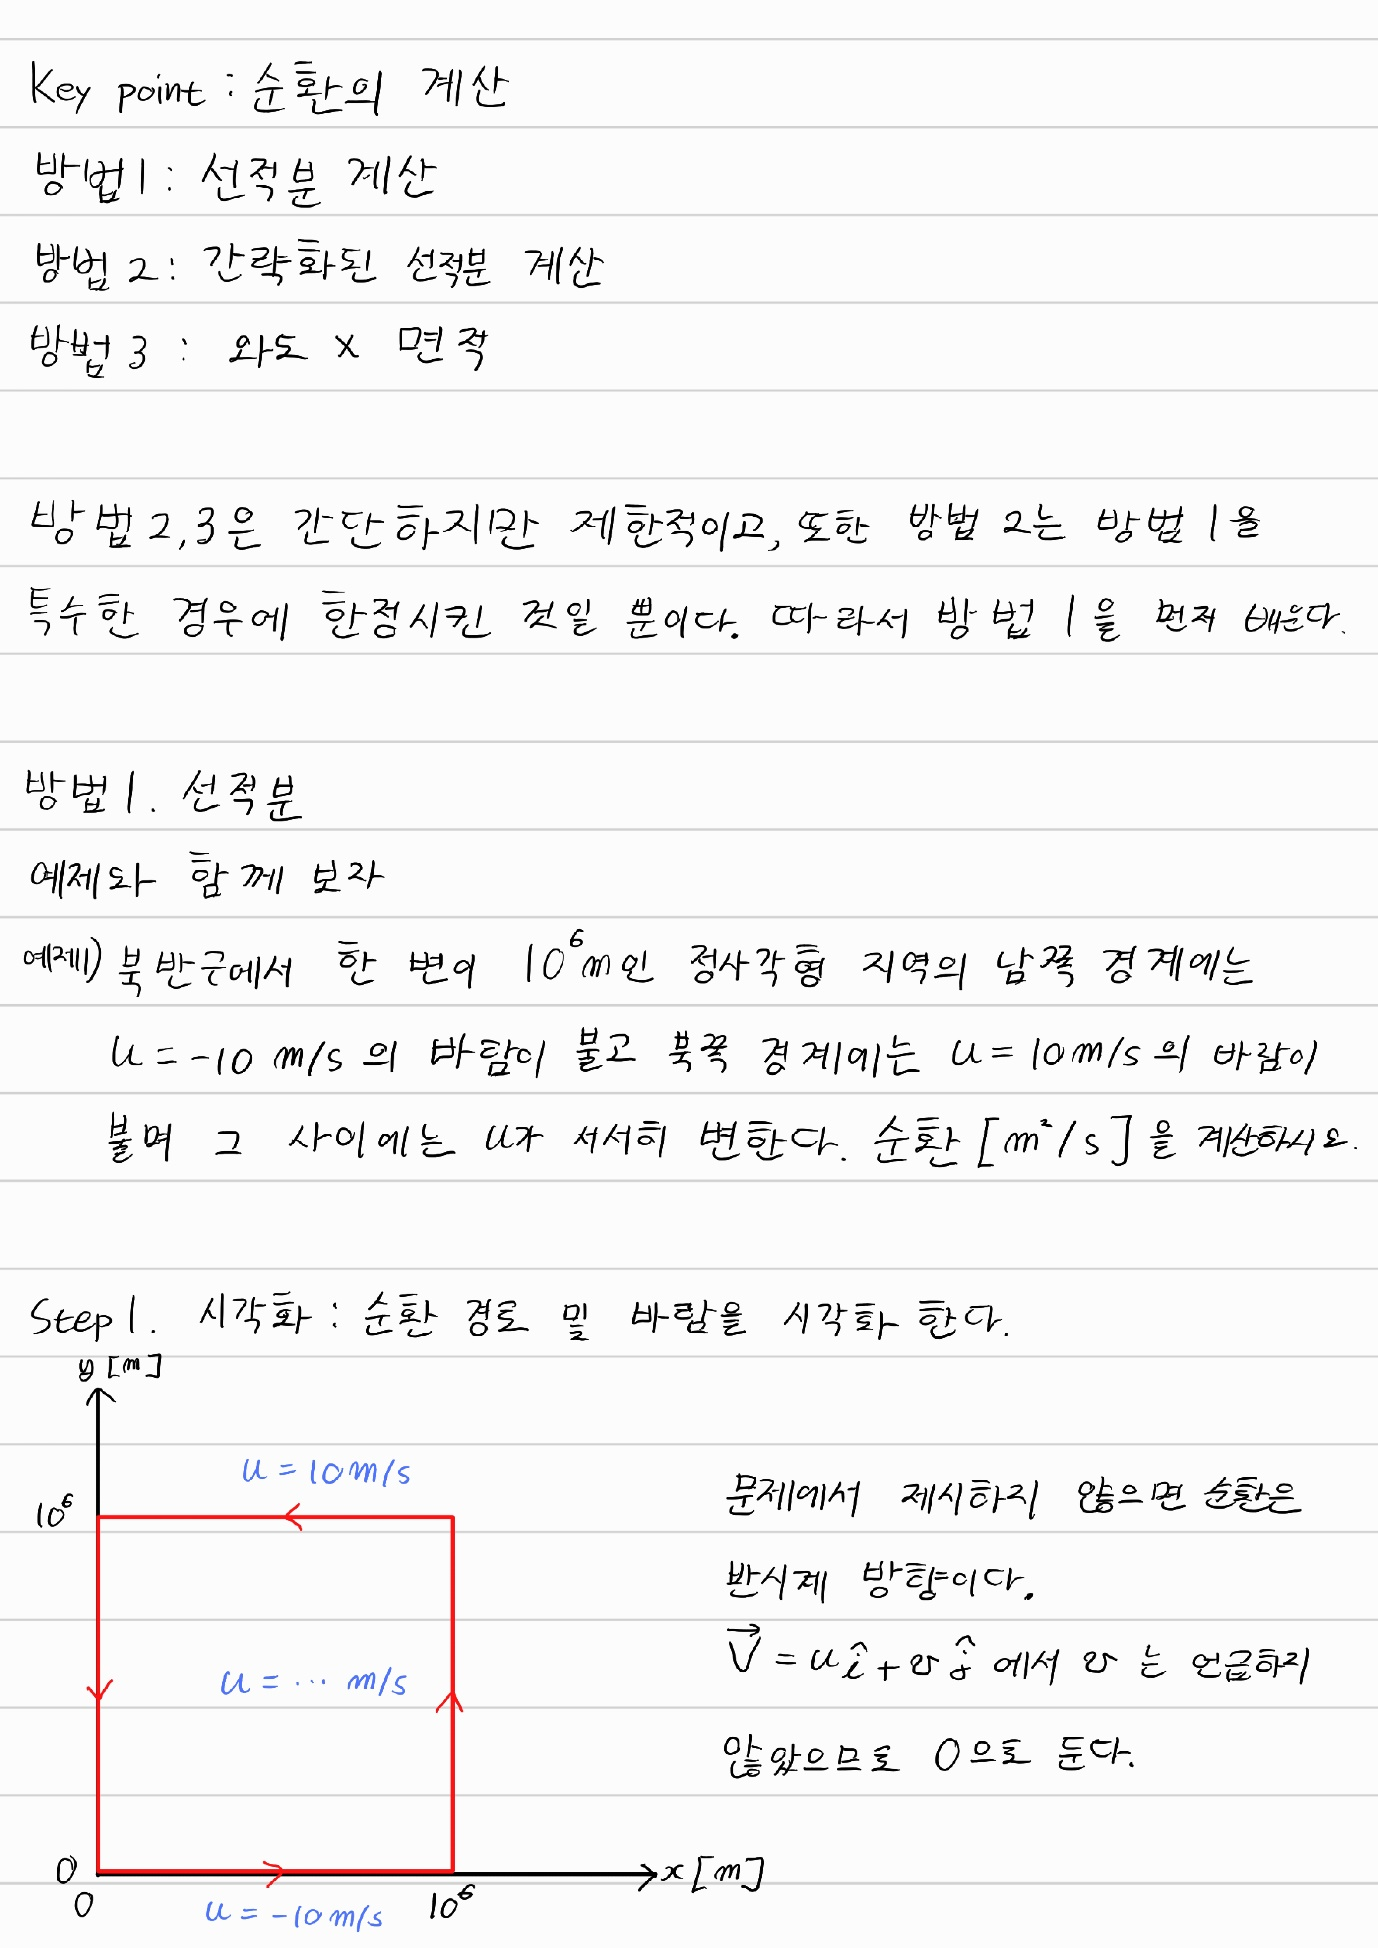 Key point : 순환의 계산
방법1 : 선적분 계산
방법 2 : 간략화된 선적분 계산
방법 3 : 와도 × 면적
방법 2,3은 간단하지만 제한적이고, 또한 방법 2는 방법 1을
특수한 경우에 한정시킨 것일 뿐이다. 따라서 방법 1을 먼저 배운다.
방법 1. 선적분
예제와 함께 보자
예제1) 북반구에서 한 변이 10⁶m인 정사각형 지역의 남쪽 경계에는
u = -10 m/s 의 바람이 불고 북쪽 경계에는 u = 10 m/s 의 바람이
불며 그 사이에는 u가 서서히 변한다. 순환 [m²/s]을 계산하시오.
Step 1. 시각화 : 순환 경로 및 바람을 시각화 한다.
y [m]
u = 10 m/s
10⁶
문제에서 제시하지 않으면 순환은
반시계 방향이다.
V⃗ = uî + vĵ 에서 v 는 언급하지
u = ⋯ m/s
않았으므로 0으로 둔다.
0
x [m]
0
10⁶
u = -10 m/s